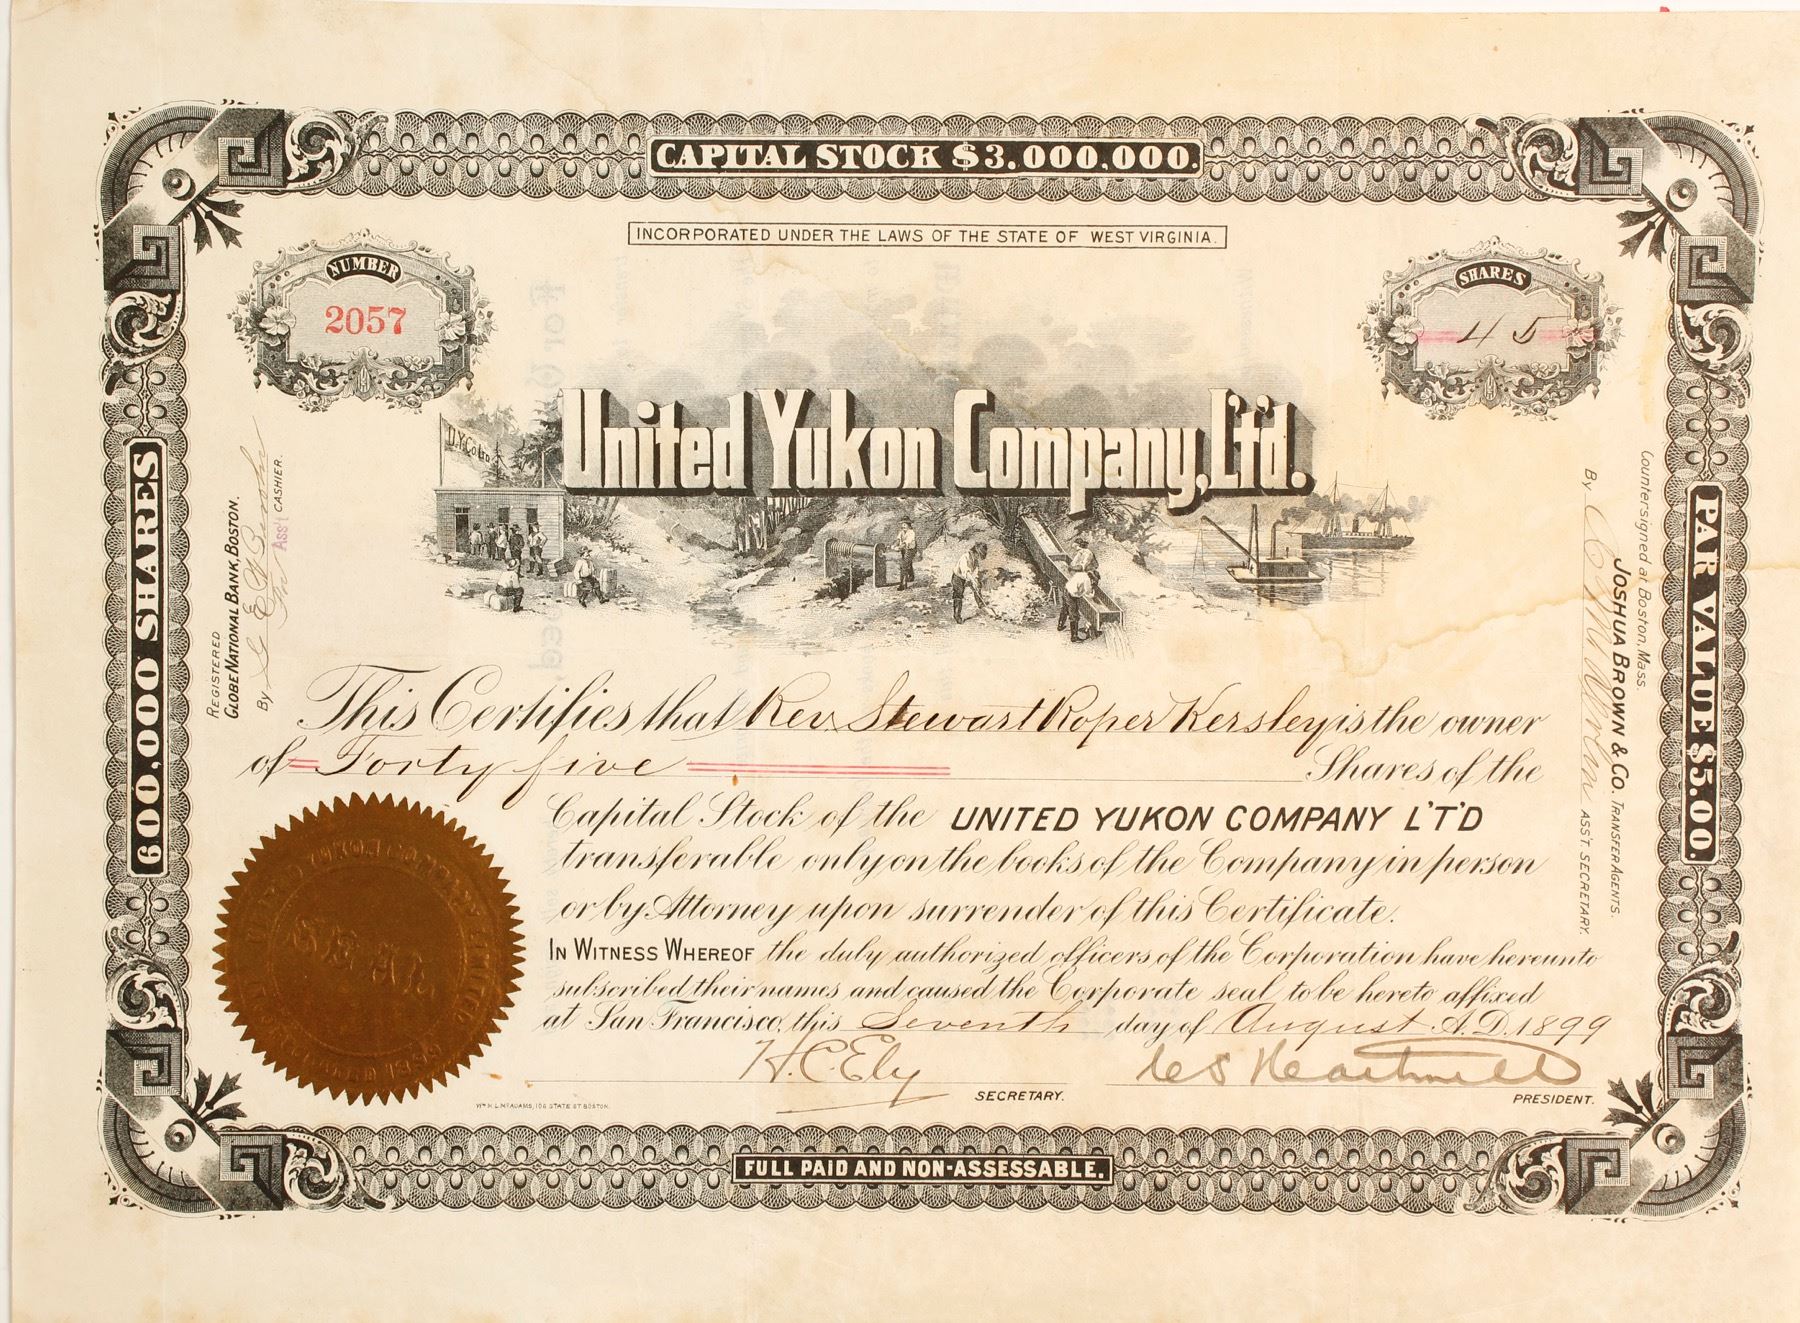 CAPITAL STOCK $3.000.000.
INCORPORATED UNDER THE LAWS OF THE STATE OF WEST VIRGINIA.
NUMBER
2057
SHARES
45
U.Y.Co Ltd
United Yukon Company, L't'd.
600,000 SHARES
REGISTERED
GLOBE NATIONAL BANK, BOSTON.
By
Ass't CASHIER.
PAR VALUE $5.00.
Countersigned at Boston, Mass
JOSHUA BROWN & CO. TRANSFER AGENTS.
By ASS'T. SECRETARY.
This Certifies that Rev. Stewart Roper Kersley is the owner
of Forty five Shares of the
Capital Stock of the UNITED YUKON COMPANY L'T'D
transferable only on the books of the Company in person
or by Attorney upon surrender of this Certificate.
IN WITNESS WHEREOF the duly authorized officers of the Corporation have hereunto
subscribed their names and caused the Corporate seal to be hereto affixed
at San Francisco, this Seventh day of August A.D. 1899
H.C. Ely
SECRETARY.
PRESIDENT.
UNITED YUKON COMPANY LIMITED
Wm H. L. McADAMS, 106 STATE ST BOSTON.
FULL PAID AND NON-ASSESSABLE.